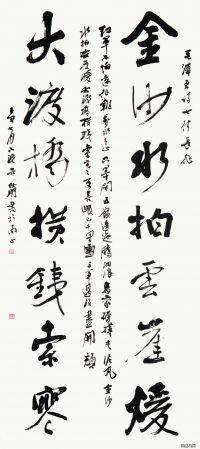 毛澤東詩七律長征
金沙水拍雲崖煖
紅軍不怕遠征難萬水千山只等閒五嶺逶迤騰細浪烏蒙磅礴走泥丸金沙
水拍雲崖煖大渡橋橫鐵索寒更喜岷山千里雪三軍過後盡開顏
大渡橋橫鐵索寒